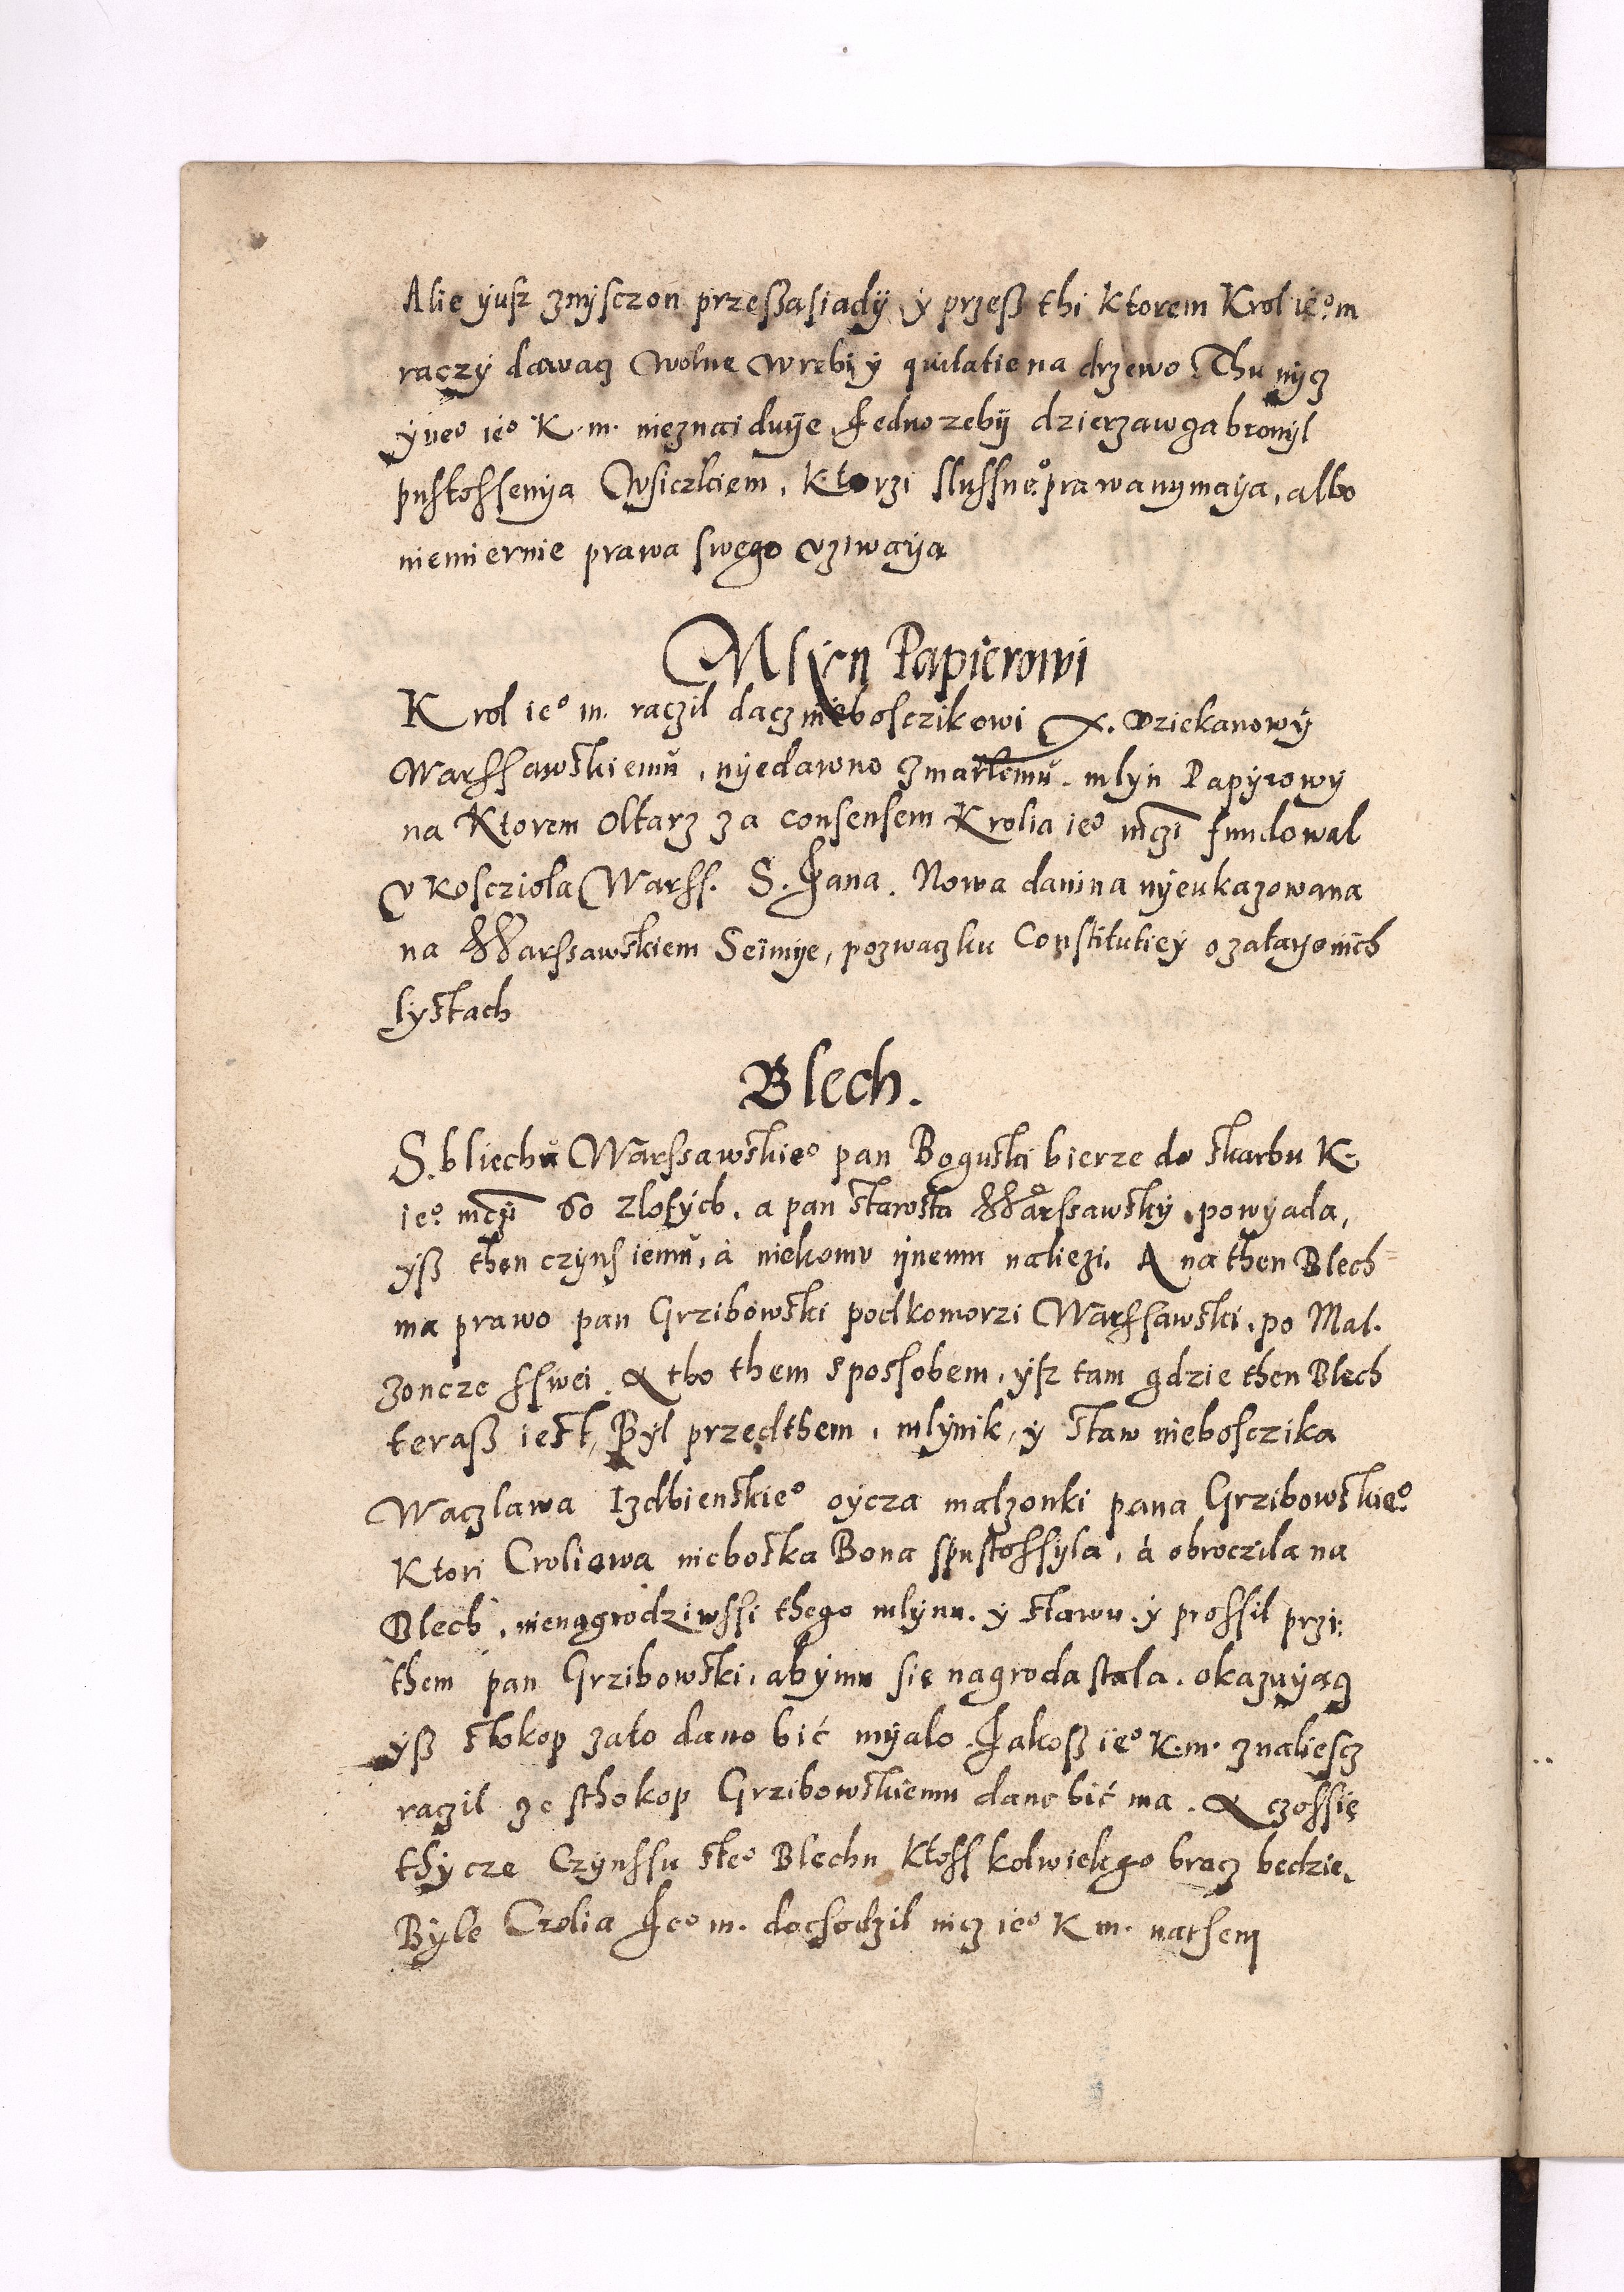 Alie yusz znysczon przeßasiady y przeß thi ktorem Krol ieº m
raczy dawacz wolne wrebi y quitatie na drzewo. Thu nycz
yneº ieº K. m. nieznaiduye Jedno zeby dzierzawcza bronyl
pustossenya Wsiczkiem, ktorzi slussneº prawa nymaya, albo
niemiernie prawa swego vziwaya
Mlyn Papierowi
Krol ieº m. raczil dacz nieboszczikowi X. Dziekanowy
Warssawskiemu, nyedawno zmarlemu. mlyn Papyrowy
na Ktorem Oltarz za consensem Krolia ieº mczi fundowal
v Koscziola Warss. S. Jana. Nowa danina nyeukazowana
na Warssawskiem Seimye, pozwaczku Constitutiey o zatayonich
lystach
Blech.
S. bliechu Warssawskieº pan Boguski bierze do skarbu K.
ieº mczi 60 zlotych. a pan starosta Warssawsky powyada,
yß then czyns iemu, à niekomu ynemu naliezi. A na then Blech
ma prawo pan Grzibowski podkomorzi Warssawski, po Mal.
zoncze sswei. A tho them sposobem, ysz tam gdzie then Blech
teraß iest, Byl przedthem, mlynik, y staw nieboszczika
Waczlawa Izdbienskieº oycza malzonki pana Grzibowskieº
Ktori Croliowa nieboska Bona spustossyla, à obroczila na
Blech, nienagrodziwssi thego mlynu. y stawu. y prossil przi
them pan Grzibowski, aby mu sie nagroda stala. okazuyacz
yß stokop zato dano bić myalo. Jakoß ieº K. m. znaliescz
raczil ze sthokop Grzibowskiemu dano bić ma. A czossie
thycze Czynssu steº Blechu ktoss kolwiek go bracz bedzie,
Byle Crolia Jeº m. dochodzil nicz ieº K m. nathem